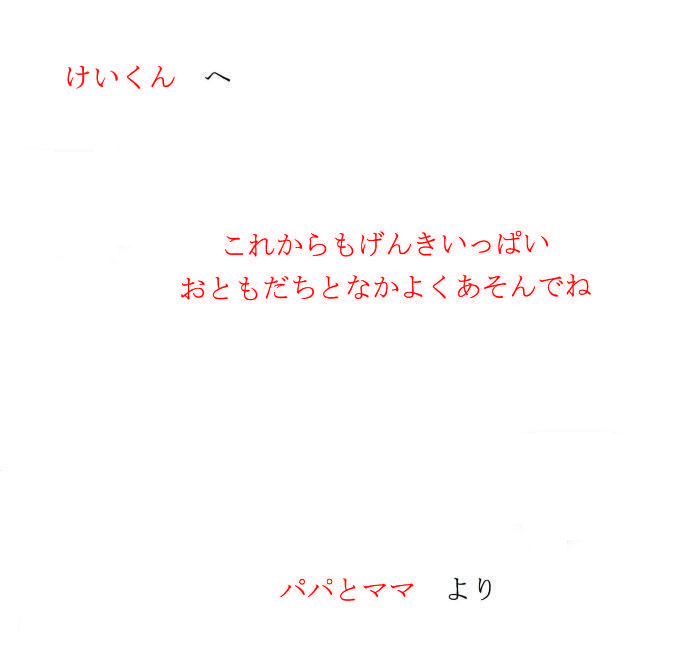 けいくん　へ
これからもげんきいっぱい
おともだちとなかよくあそんでね
パパとママ　より